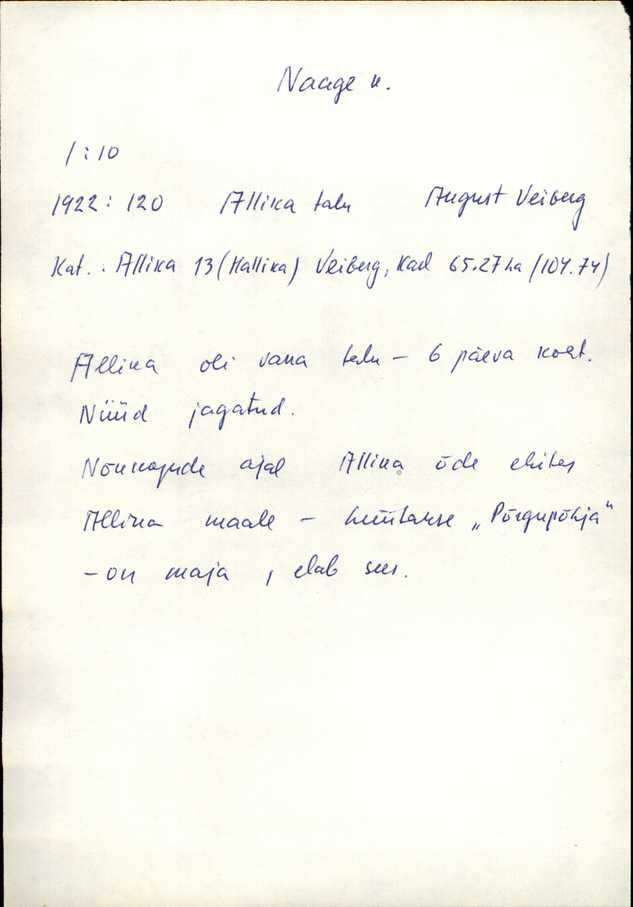 Naage k.
1:10
1922: 120 Allika talu August Veiberg
Kat.: Allika 13 (Hallika) Veiberg, Kad 65.27 ha (104.74)
Allika oli vana talu – 6 päeva koht.
Nüüd jagatud.
Nõukogude ajal Allika õde ehitas
Allika maale – hüütakse „Põrgupõhja"
– on maja, elab sees.